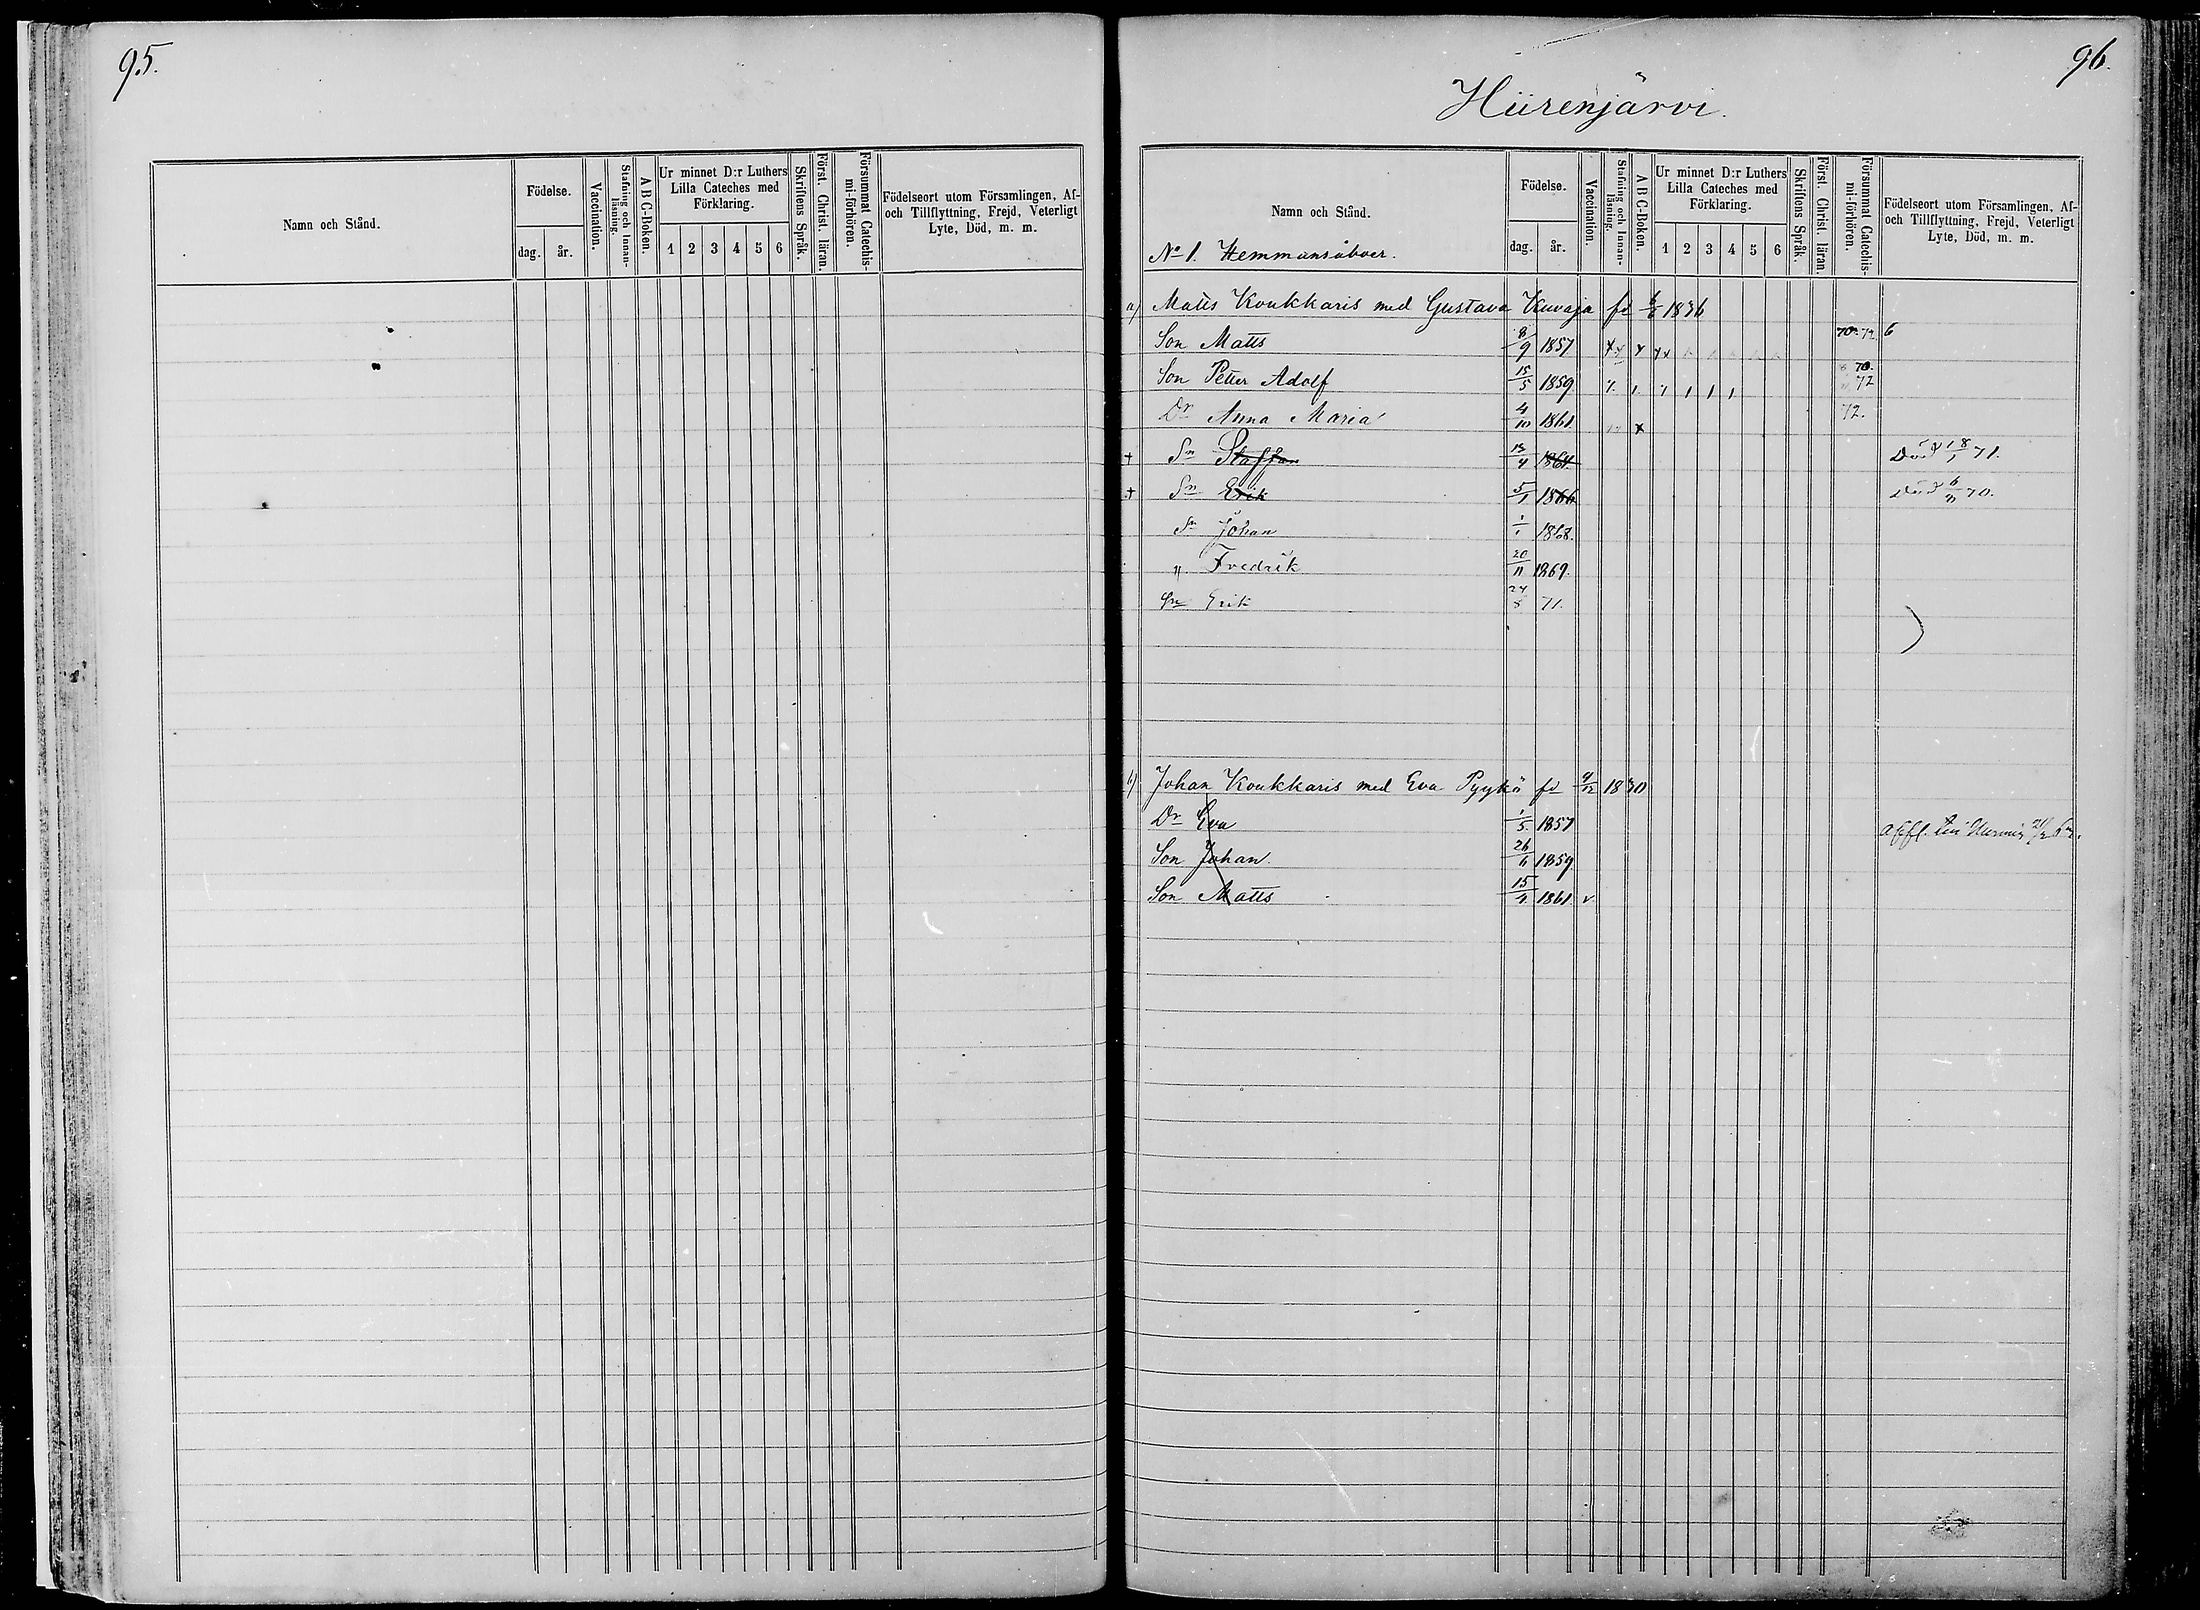 95.
Namn och Stånd.
Födelse.
dag. år.
Vaccination.
Stafning och Innan-
läsning.
A B C-Boken.
Ur minnet D:r Luthers
Lilla Cateches med
Förklaring.
1 2 3 4 5 6
Skriftens Språk.
Först. Christ. läran.
Försummat Catechis-
mi-förhören.
Födelseort utom Församlingen, Af-
och Tillflyttning, Frejd, Veterligt
Lyte, Död, m. m.
96.
Hiirenjärvi.
Namn och Stånd.
No 1. Hemmansåboer.
Födelse.
dag. år.
Vaccination.
Stafning och Innan-
läsning.
A B C-Boken.
Ur minnet D:r Luthers
Lilla Cateches med
Förklaring.
1 2 3 4 5 6
Skriftens Språk.
Först. Christ. läran.
Försummat Catechis-
mi-förhören.
Födelseort utom Församlingen, Af-
och Tillflyttning, Frejd, Veterligt
Lyte, Död, m. m.
a) Matts Koukkaris med Gustava Kuvaja fd 1836
Son Matts 8/9 1857 70. 72 6
Son Petter Adolf 15/5 1859 70. 72
Dr Anna Maria 4/10 1861. 72.
+ Sn Staffan 13/4 1864. Död 18/1 71.
+ Sn Erik 5/1 1866 Död 70.
Sn Johan 1/1 1868.
" Fredrik 20/11 1869.
Sn Erik 71.
b) Johan Koukkaris med Eva Pyykö fd 4/12 1830
Dr Eva 1/5. 1857 affl. till
Son Johan. 26/6 1859.
Son Matts 1861 v.